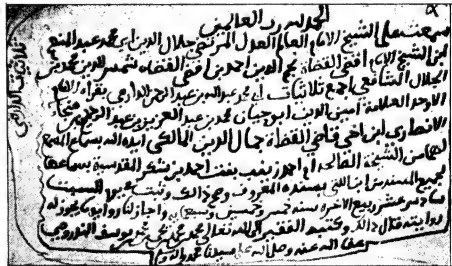 الحمد لله رب العالمين
سمعت على الشيخ الامام العالم العدل المرتضى جلال الدين ابى محمد عبد المنعم
ابن الشيخ الامام اقضى القضاة نجم الدين احمد بن اقضى القضاة شمس الدين محمد بن
الجلال الشافعى اجمع ثلاثيات ابى محمد عبد الله بن عبد الرحمن الدارمى بقراءة الامام
الاوحد العلامة امين الدين ابو حيان محمد بن عبد العزيز بن عبد الرحمن
الانصارى ابن اخى قاضى القضاة جمال الدين المالكى ايده الله بسماع المسمع
لها من الشيخة الصالحة ام احمد زينب بنت احمد بن شكر المقدسية بسماعها
لجميع المسند من ابن اللتى بسنده المعروف وصح ذلك وثبت عشى السبت
سادس عشر ربيع الاخر سنة خمس وخمسين وسبع مايه واجاز لنا رواية ما يجوز له
روايته قال ذلك وكتبه الفقير الى الله تعالى محمد بن محمد بن يوسف
عفا الله عنه وصلى الله على سيدنا محمد واله
ثلاثيات الدارمى